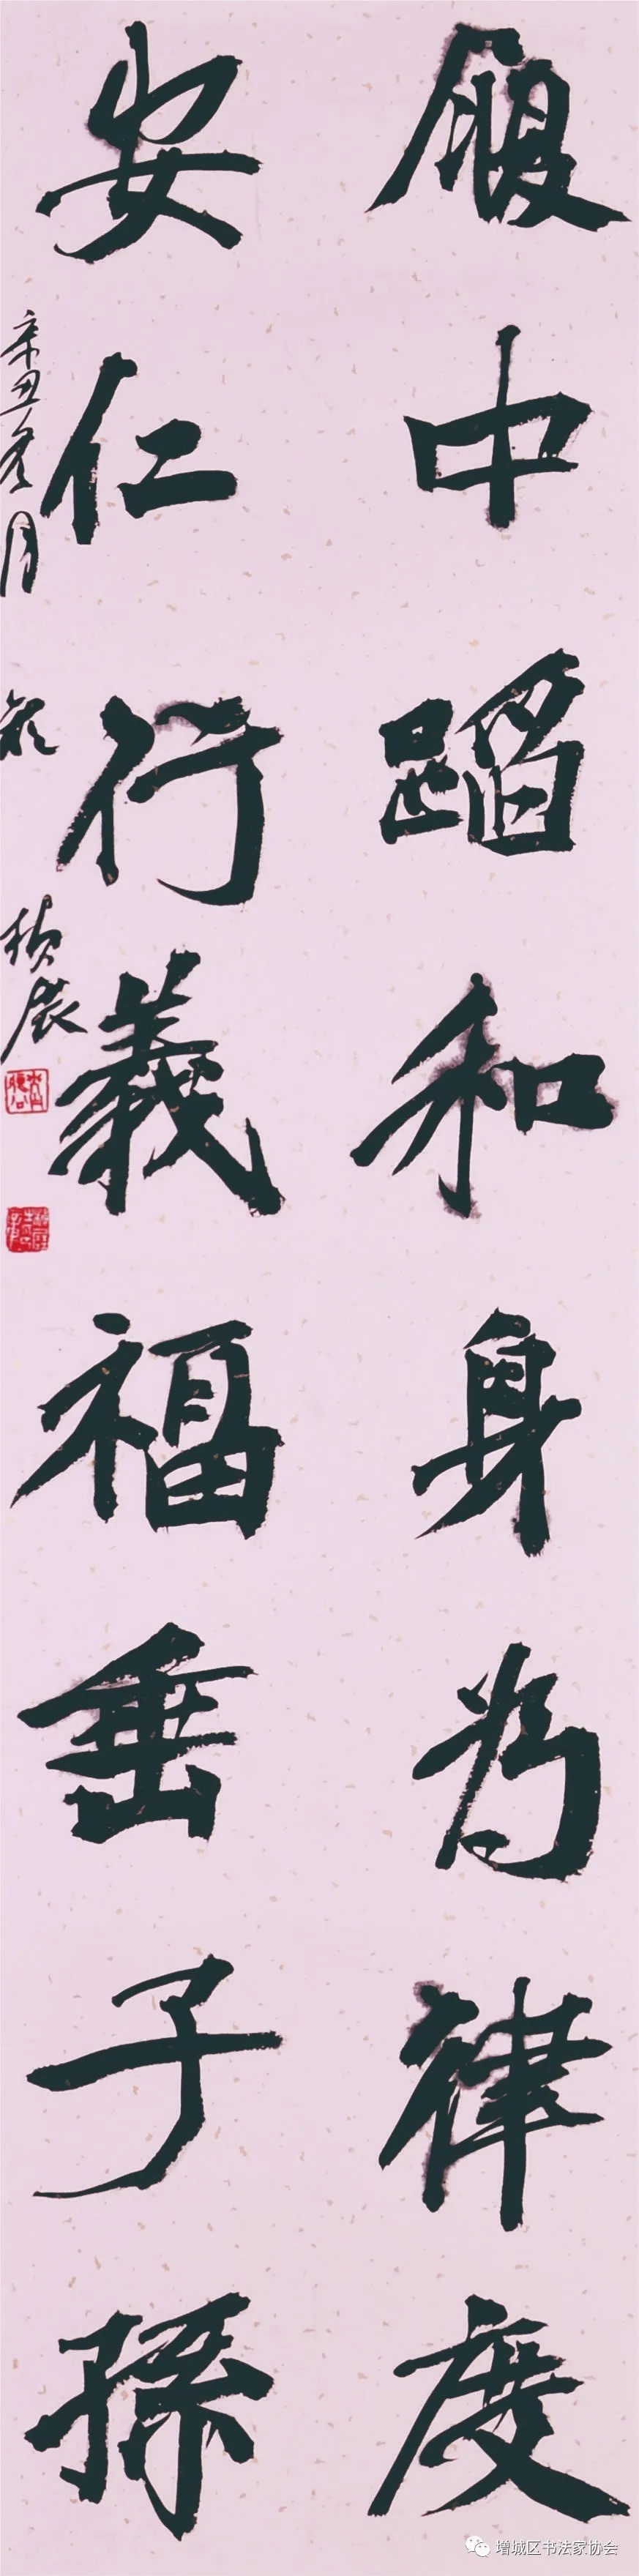 履中蹈和身为律度
安仁行義福垂子孫
辛丑冬月
增城区书法家协会